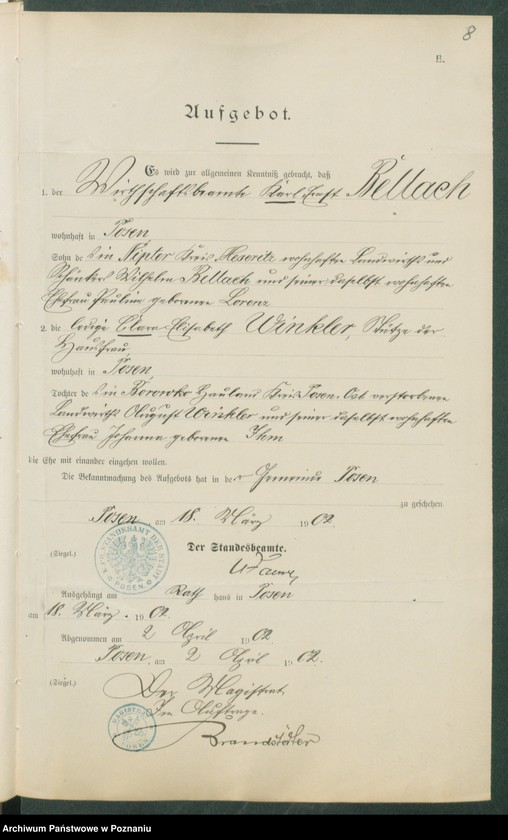 8
E.
Aufgebot.
Es wird zur allgemeinen Kenntniß gebracht, daß
1. der Wirthschaftsbeamte Karl Ernst Bellach
wohnhaft in Posen
Sohn des in Nipter Kreis Meseritz wohnhaften Landwirths und
Schänkers Wilhelm Bellach und seiner daselbst wohnhaften
Ehefrau Pauline geborene Lorenz
2. die ledige Clara Elisabeth Winkler, Stütze der
Hausfrau,
wohnhaft in Posen
Tochter des in Borowko Hauland Kreis Posen-Ost verstorbenen
Landwirths August Winkler und seiner daselbst wohnhaften
Ehefrau Johanna geborene Ihm
die Ehe mit einander eingehen wollen.
Die Bekanntmachung des Aufgebots hat in der Gemeinde Posen
zu geschehen
Posen am 18. März 1902.
(Siegel.) Der Standesbeamte.
K. PR. STANDESAMT DER STADT POSEN
Ausgehängt am Rathhaus in Posen
am 18. März 1902
Abgenommen am 2 April 1902
Posen, am 2 April 1902.
(Siegel.) Der Magistrat
Im Auftrage.
MAGISTRAT POSEN
Brandstädter
Archiwum Państwowe w Poznaniu